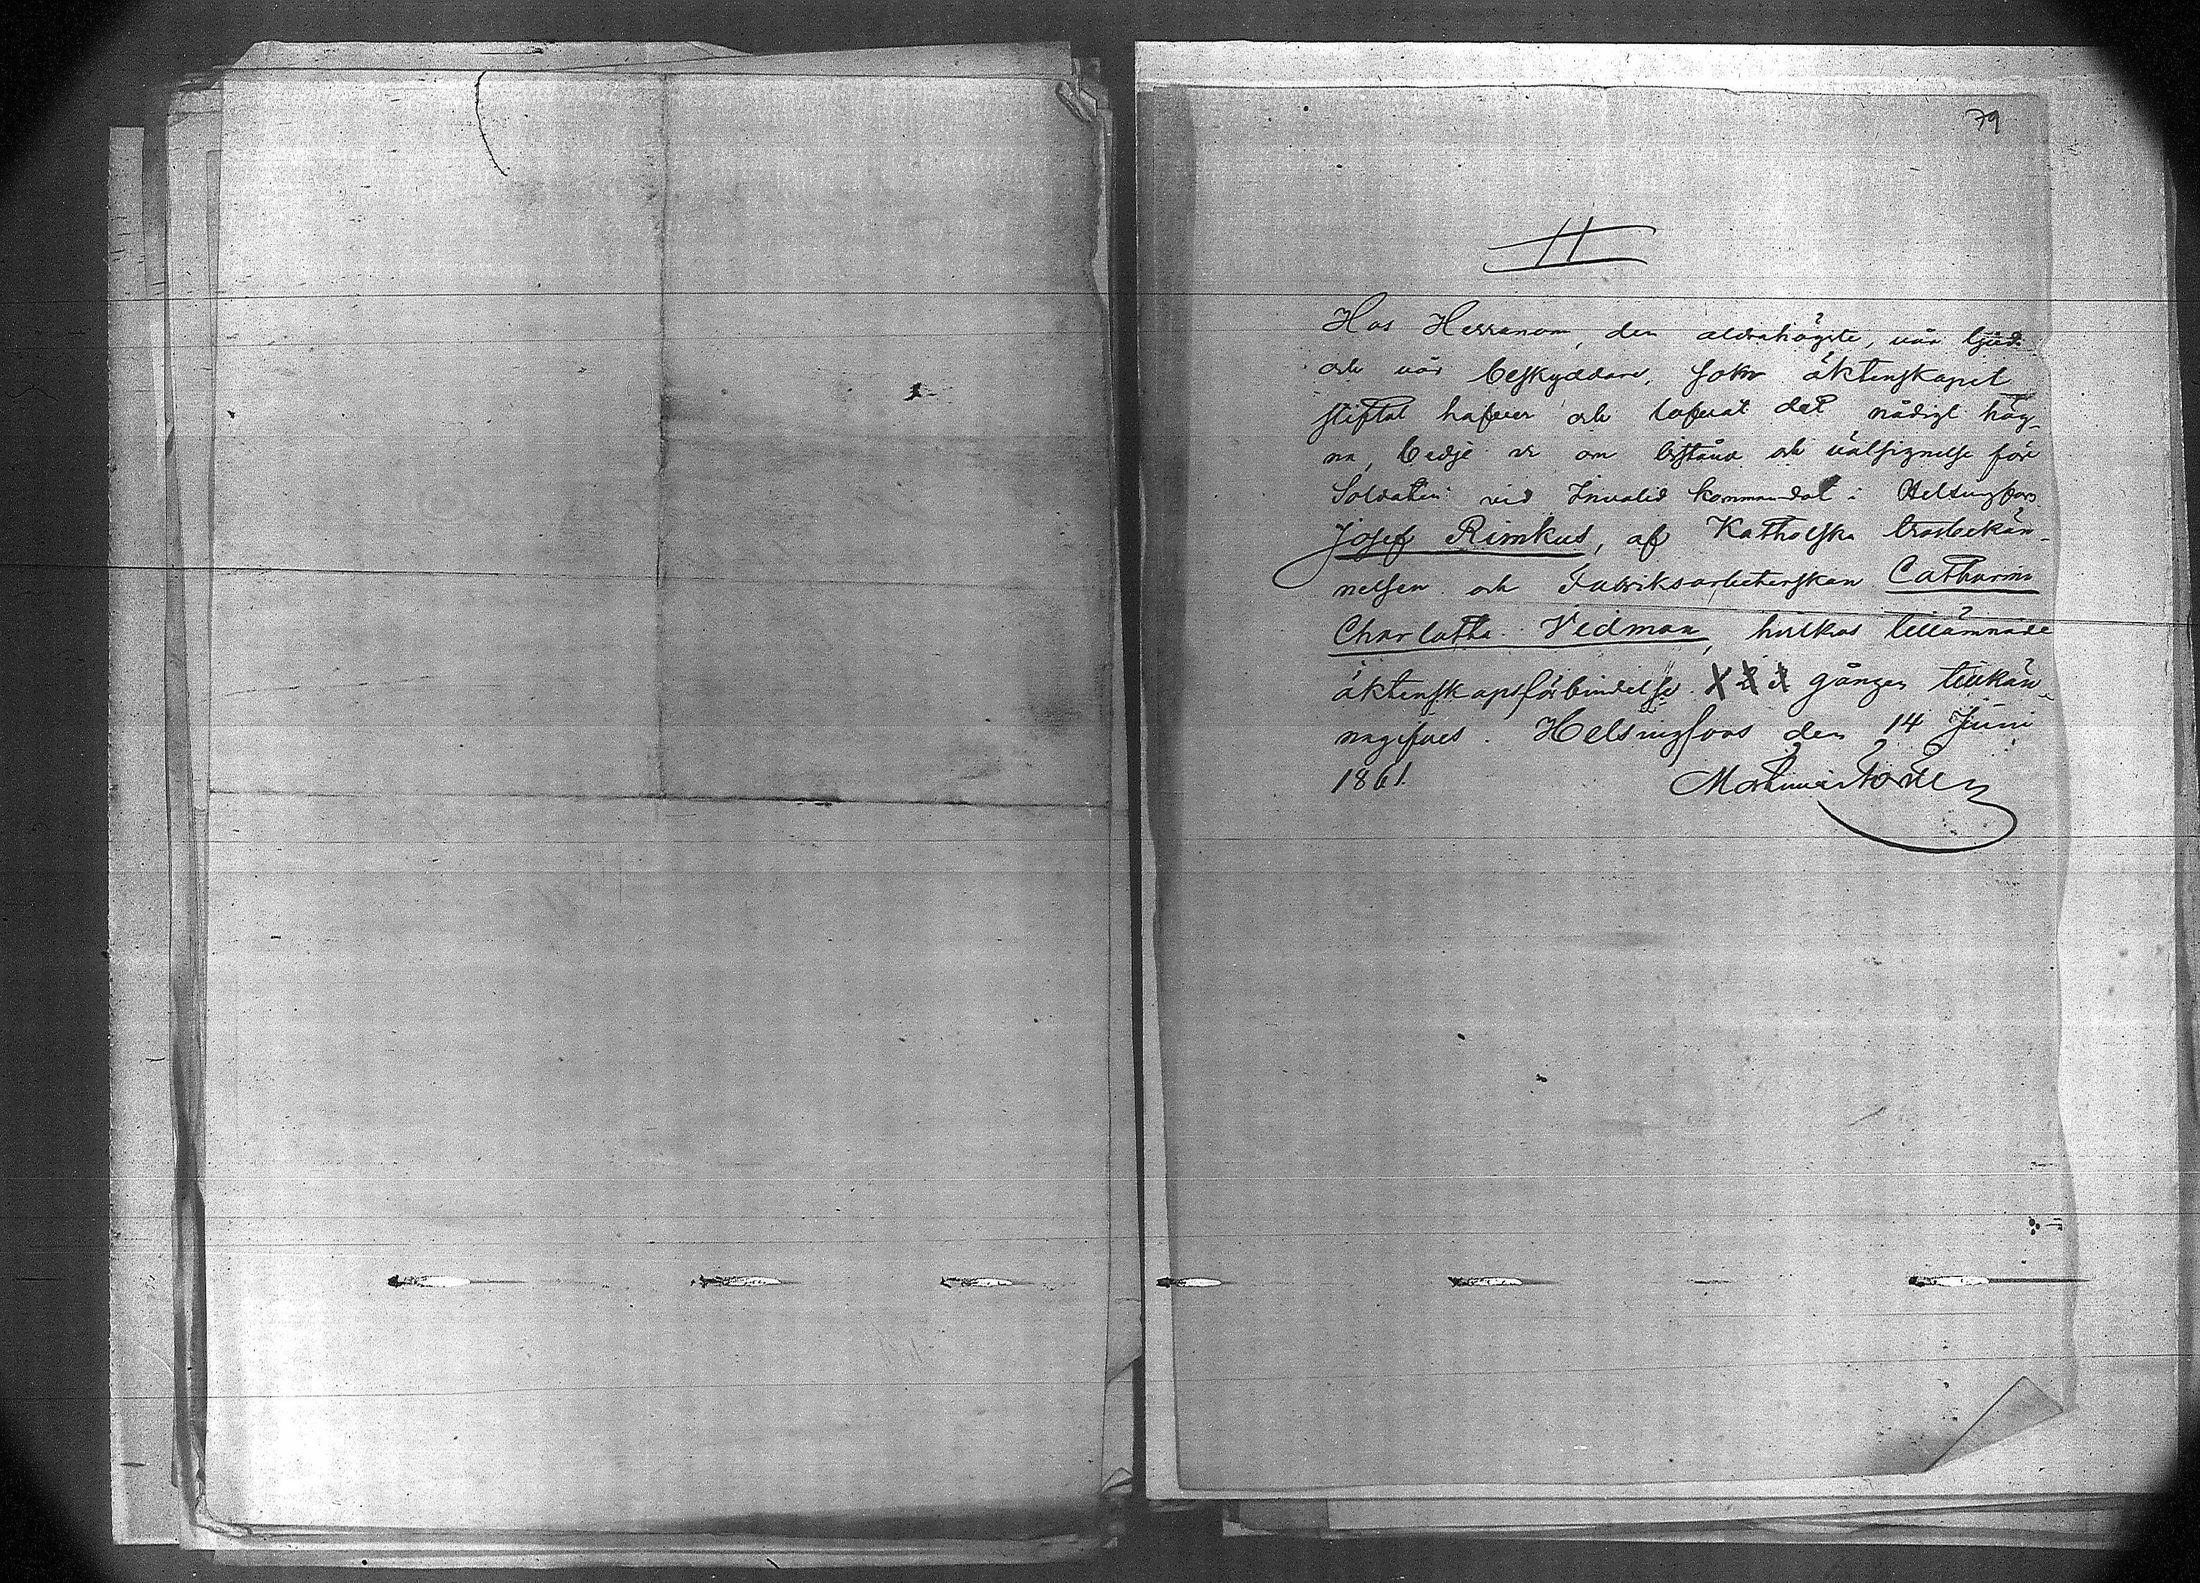 79
H
Hos Herranom, den aldrahögste, vår Gud
och vår beskyddare, som äktenskapet
stiftat hafver och lofvat det nådigt häg-
na, bedje vi om bistånd och välsignelse före
Soldaten vid Invalid kommandot i Helsingfors
Josef Rimkus, af Katholska trosbekän-
nelsen och Fabriksarbeterskan Catharina
Charlotta Vidman, hvilkas tillämnade
äktenskapsförbindelse gången tillkän-
nagifves. Helsingfors den 14 Juni
1861.